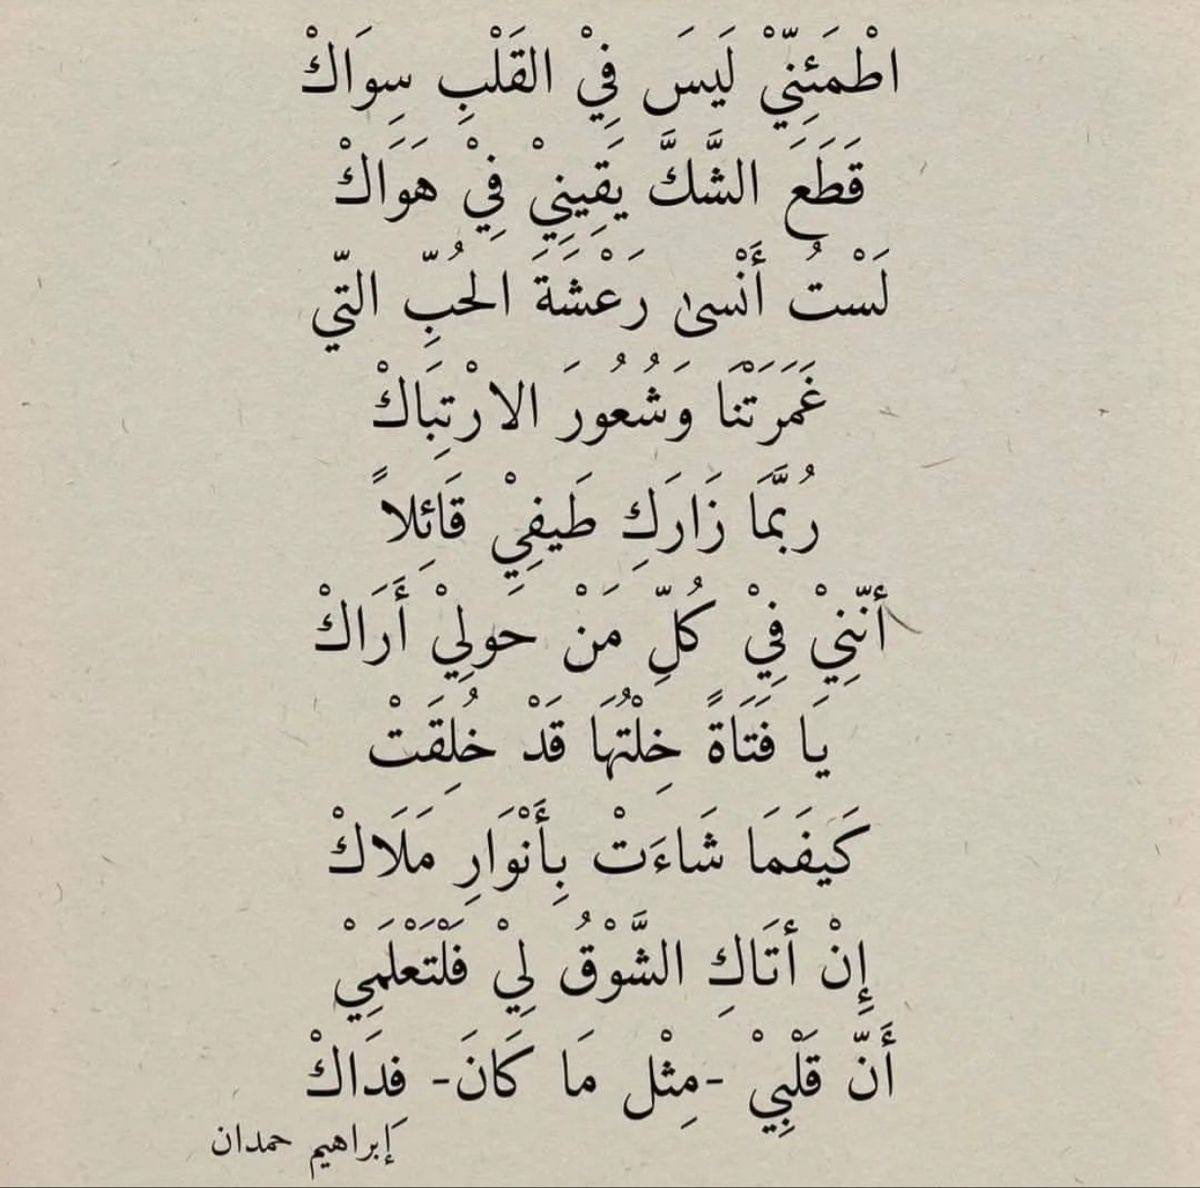 اطْمَئِنِّيْ لَيسَ فِيْ القَلْبِ سِوَاكْ
قَطَعَ الشَّكَّ يَقِينِيْ فِيْ هَوَاكْ
لَسْتُ أَنْسىٰ رَعْشَةَ الحُبِّ التّي
غَمَرَتْنَا وَشُعُورَ الارْتِبَاكْ
رُبَّمَا زَارَكِ طَيفِيْ قَائِلاً
أنّنِيْ فِيْ كُلِّ مَنْ حَولِيْ أَرَاكْ
يَا فَتَاةً خِلْتُهَا قَدْ خُلِقَتْ
كَيفَمَا شَاءَتْ بِأَنْوَارِ مَلَاكْ
إِنْ أتَاكِ الشَّوْقُ لِيْ فَلْتَعْلَمِيْ
أَنّ قَلْبِيْ -مِثْل مَا كَانَ- فِدَاكْ
إبراهيم حمدان